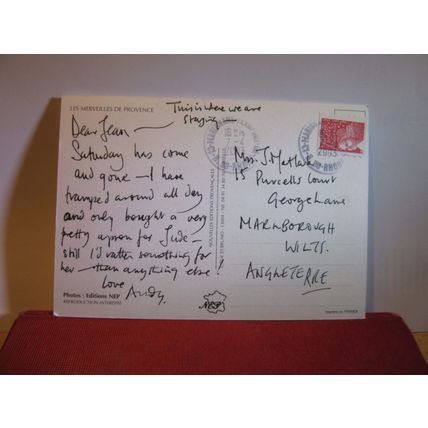 LES MERVEILLES DE PROVENCE
This is where we are
staying
Dear Jean
Saturday has come
and gone — I have
tramped around all day
and only bought a very
pretty apron for Jude —
still I'd rather something for
her — than anything else
Love
Andy.
Photos : Editions NEP
REPRODUCTION INTERDITE
NEP
Mrs. J. Matlak
15 Purcells Court
George Lane
MARLBOROUGH
WILTS.
ANGLETERRE